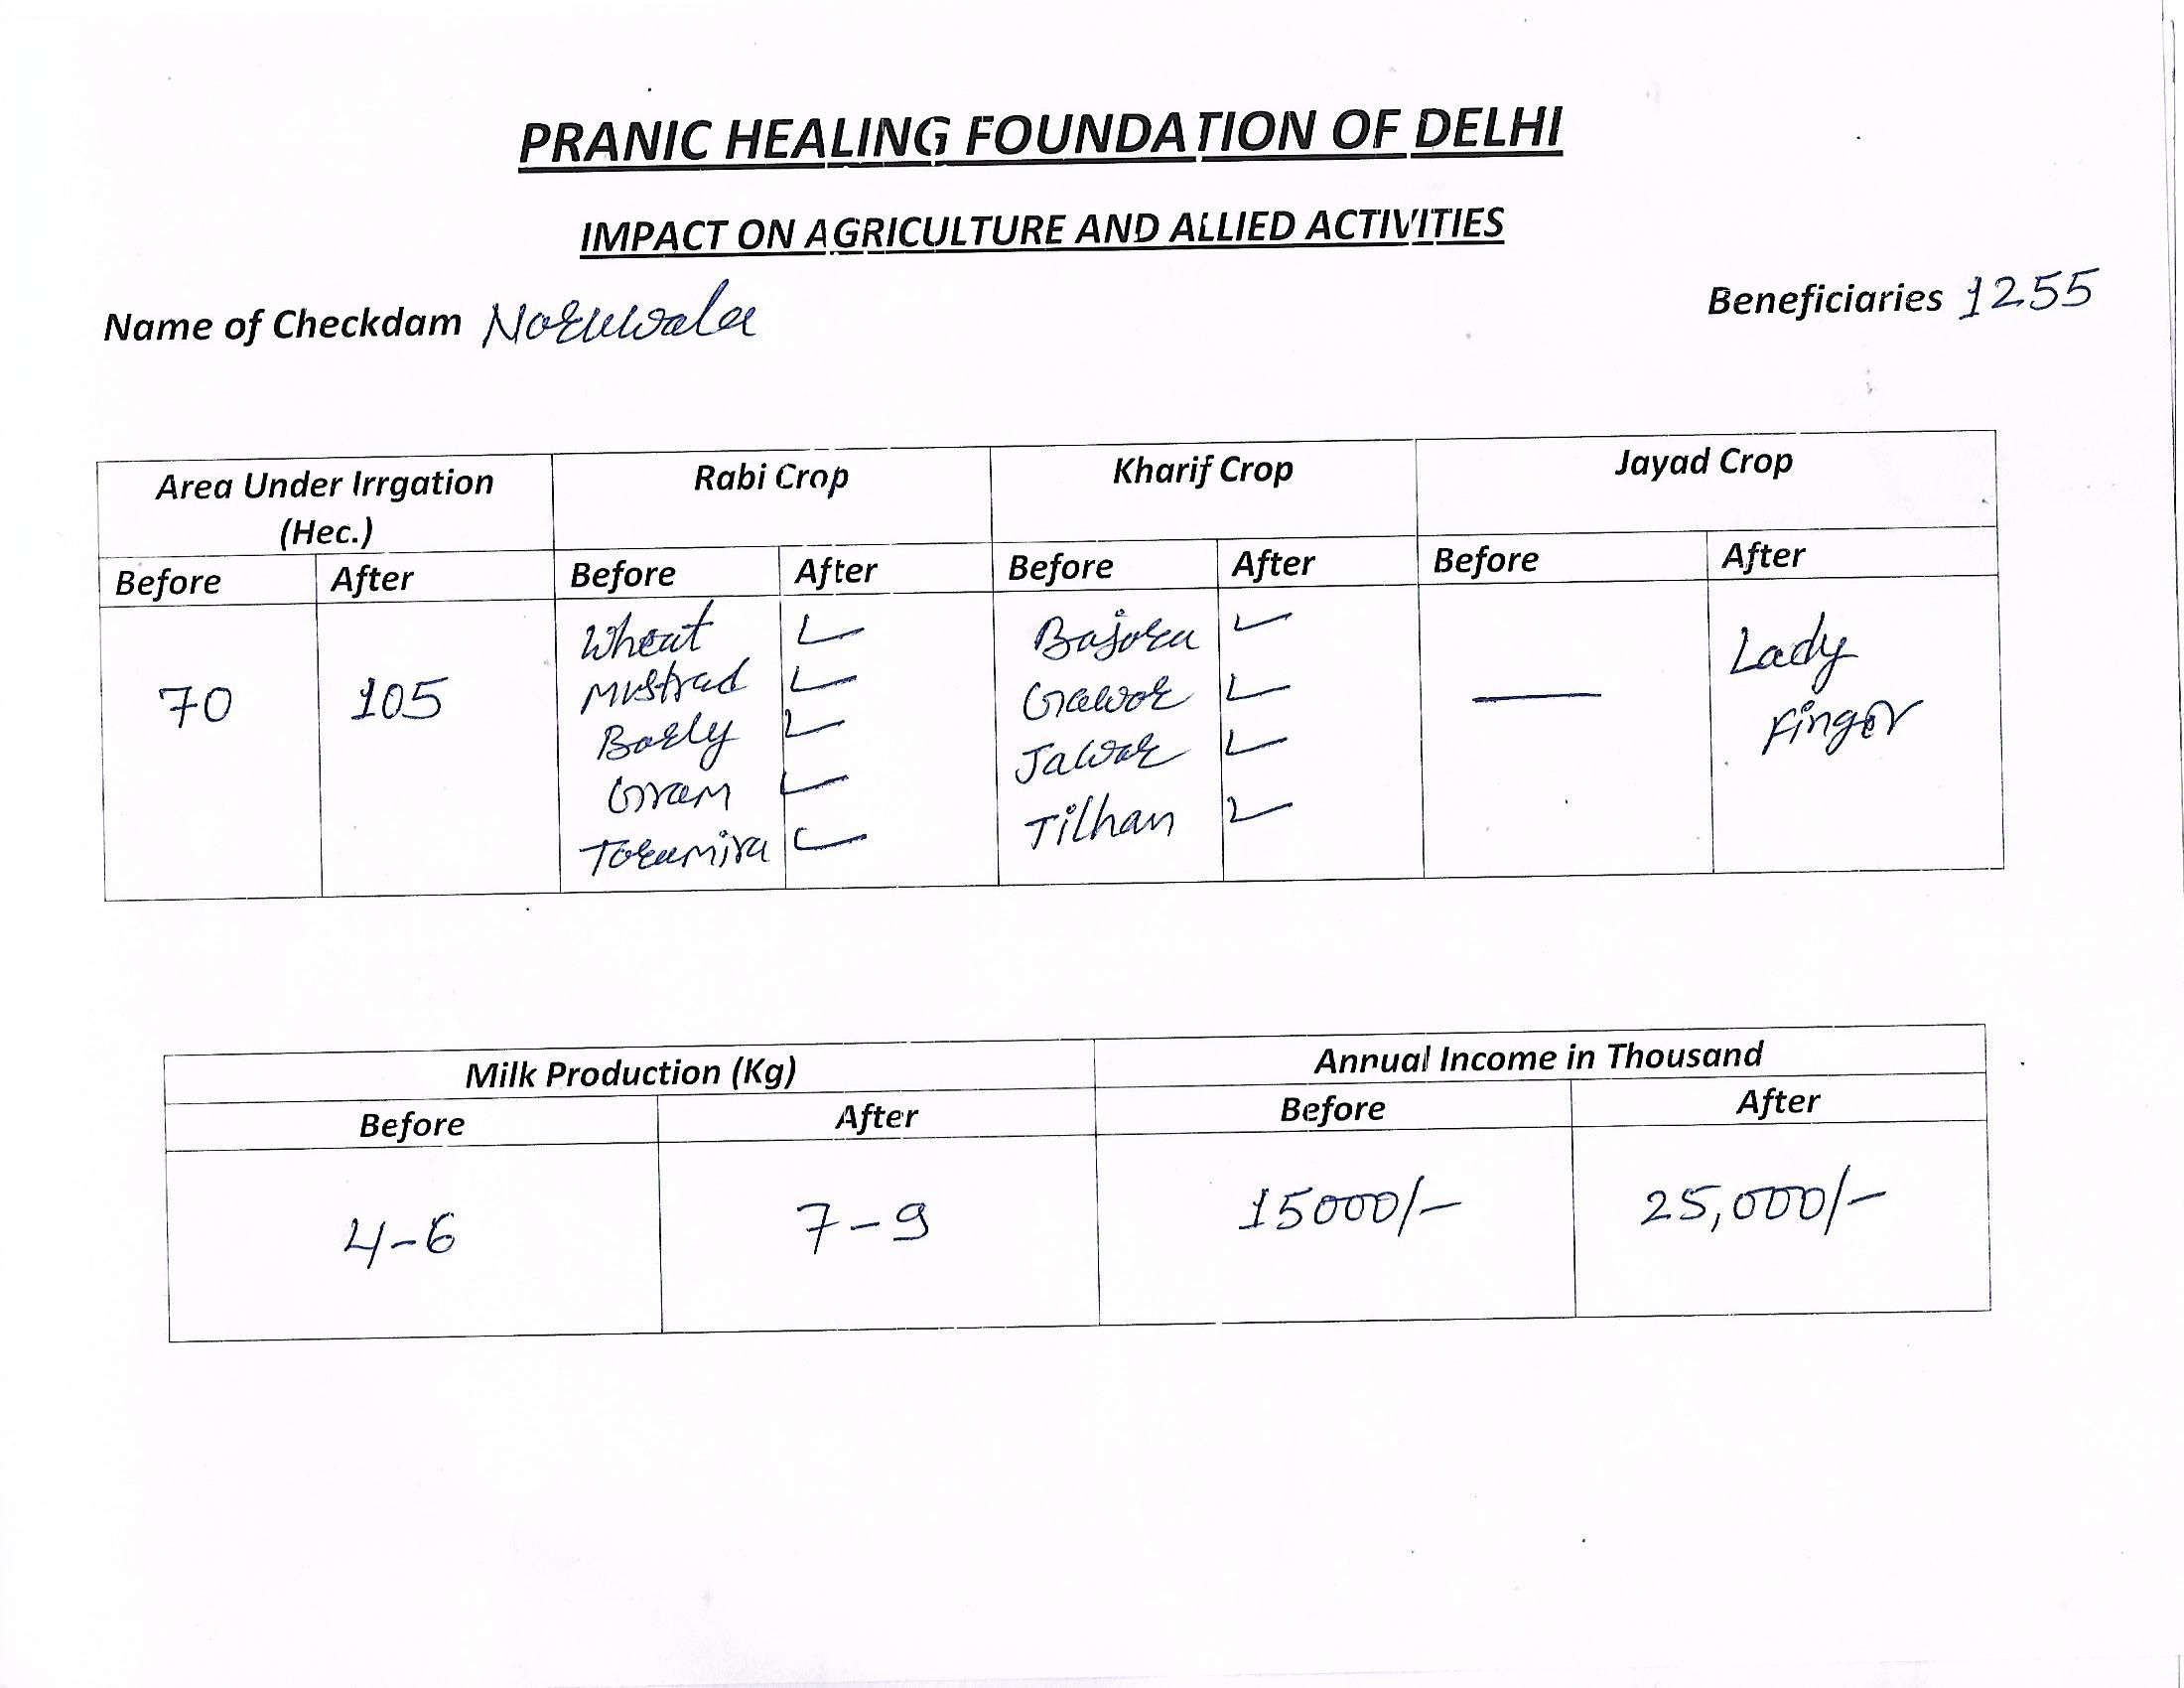 PRANIC HEALING FOUNDATION OF DELHI
IMPACT ON AGRICULTURE AND ALLIED ACTIVITIES
Name of Checkdam Naruwala
Beneficiaries 1255
Area Under Irrgation (Hec.)
Rabi Crop
Kharif Crop
Jayad Crop
Before After Before After Before After Before After
70 105
Wheat ✓
Mustrad ✓
Barly ✓
Gram ✓
Taramira ✓
Bajara ✓
Gawar ✓
Jawar ✓
Tilhan ✓
—
Lady
Finger
Milk Production (Kg) Annual Income in Thousand
Before After Before After
4-6 7-9 15000/- 25,000/-